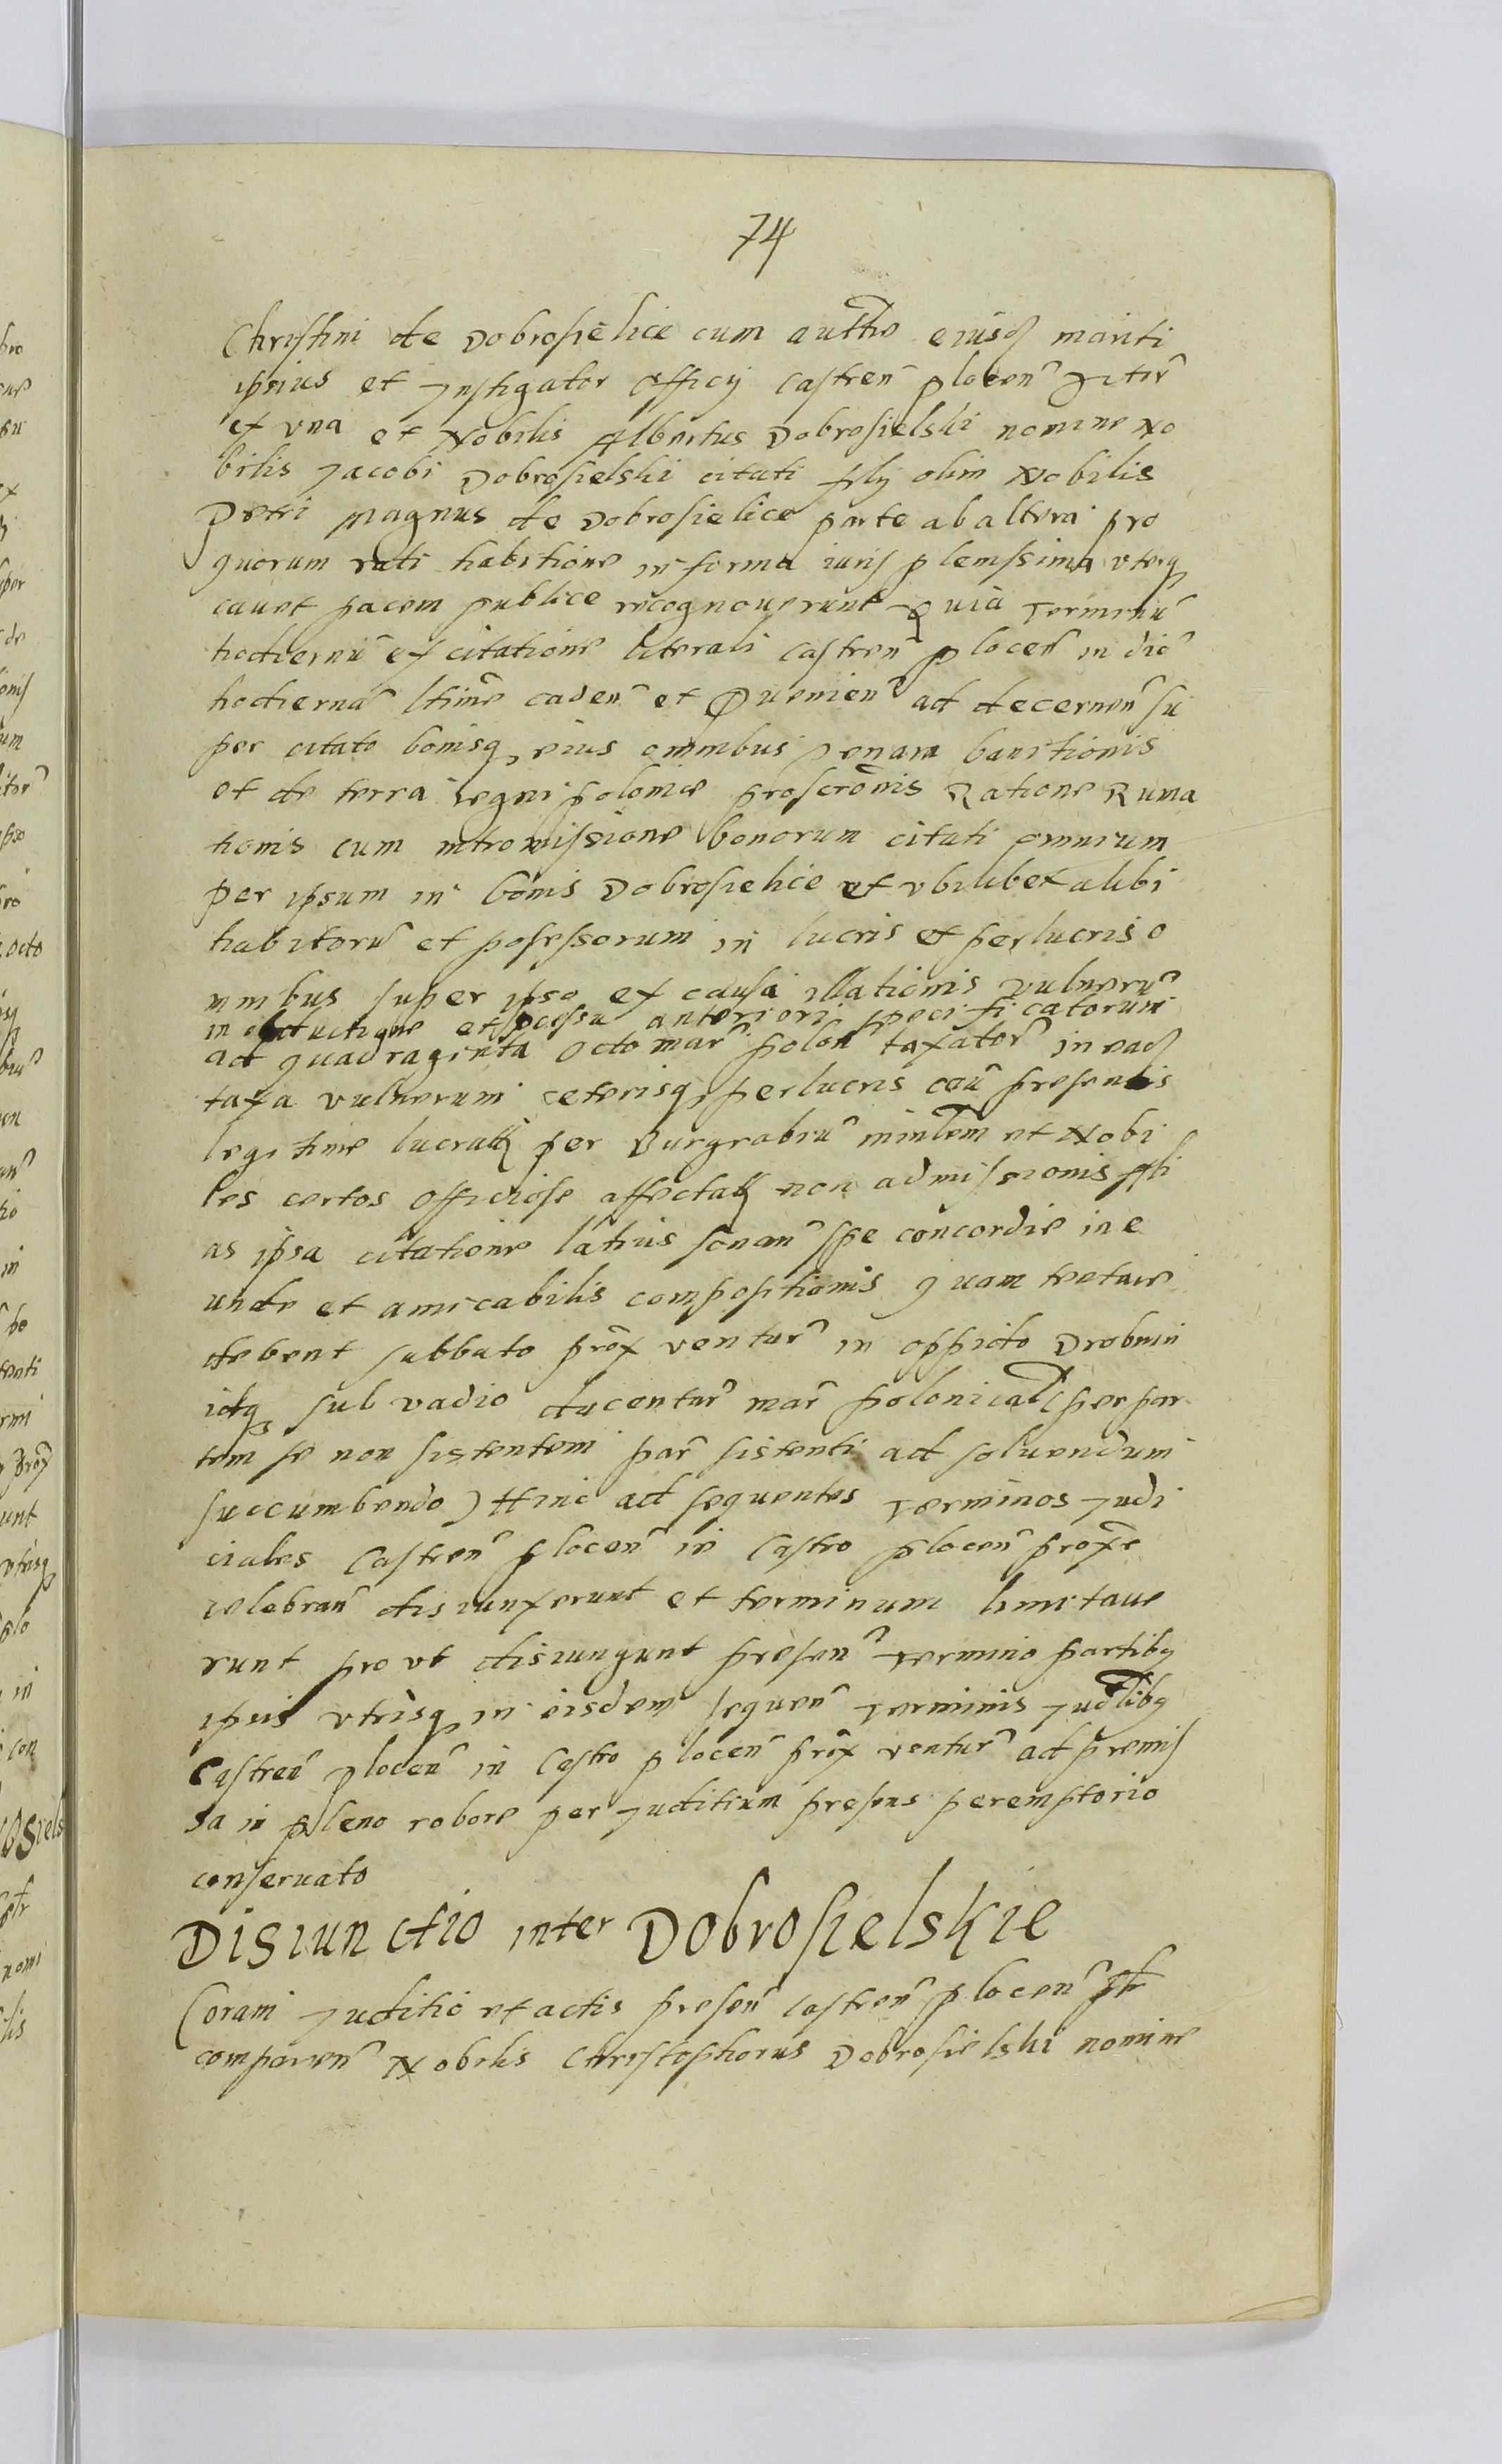 74
Christini de Dobrosielice cum autthre eiusd mariti
ipsius et Jnstigator Officij Castren̄ plocen̄ Actor̄
ex vna et Nobilis Albertus Dobrosielski nomine No
bilis Jacobi Dobrosielski citati filij olim Nobilis
Petri Magnus de Dobrosielice parte ab altera pro
quorum rati habitione in forma iuris plenissima vterq
cauet pacem publice recognouerunt Quia Terminū
hodiernū ex citatione literali Castren̄ plocen̄ in die
hodiernā ltime caden̄ et puenien̄ ad decernen̄ su
per citato bonisq eius omnibus penam banitionis
et de terra regni polonie proscrōnis Ratione Ruma
tionis cum intromissione bonorum citati omnium
per ipsum in bonis Dobrosielice et vbilibet alibi
habitorū et possessorum in lucris et perlucris o
mnibus super ipso ex causa illationis vulnerū
in obductione et pcessu anteriori specificatorum
ad quadraginta octo mar̄ polon̄ taxator̄ in ead
taxa vulnerum ceterisq perlucris ceū presentis
legitime lucratis per Burgrabiū minlem et Nobi
les certos officiose affectatis non admissionis Ali
as ipsa citatione latius sonan̄ spe concordie ine
unde et amicabilis compositionis quam tretare
debent sabbato prox̄ ventur̄ in oppido Drobnin
idq sub vadio ducentar̄ mar̄ polonical(per par
tem se non sistentem par̄ sistenti ad soluendum
succumbendo) Hinc ad sequentes Terminos Judi
ciales Castren̄ plocen̄ in Castro plocen̄ proxe
celebran̄ disiunxerunt et terminum limitaue
runt pro vt disiungunt presen̄ Termino partibq
ipsis vtrisq in eisdem sequen̄ Terminis Judlibq
Castren̄ plocen̄ in Castro plocen̄ prox̄ ventur̄ ad premis
sa in pleno robore per Juditium presens peremptorio
conseruato
Disiunctio inter Dobrosielskie
Coram Juditio et actis presen̄ Castren̄ plocen̄ ptr
comparen̄ Nobilis Christophorus Dobrosielski nomine